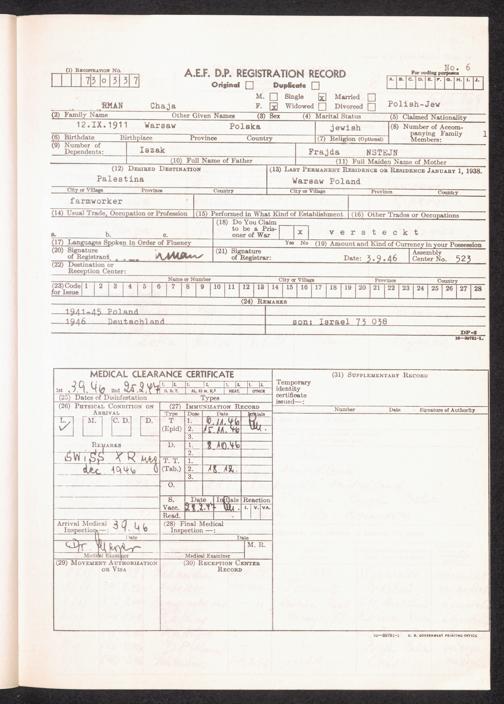 No. 6
(1) Registration No.
730337
A.E.F. D.P. REGISTRATION RECORD
For coding purposes
Original Duplicate
A. B. C. D. E. F. G. H. I. J.
M. Single x Married
RMAN Chaja F. x Widowed Divorced Polish-Jew
(2) Family Name Other Given Names (3) Sex (4) Marital Status (5) Claimed Nationality
12.IX.1911 Warsaw Polska jewish (8) Number of Accompanying Family Members: 1
(6) Birthdate Birthplace Province Country (7) Religion (Optional)
(9) Number of Dependents: Iszak Frajda NSTEJN
(10) Full Name of Father (11) Full Maiden Name of Mother
(12) Desired Destination (13) Last Permanent Residence or Residence January 1, 1938.
Palestina Warsaw Poland
City or Village Province Country City or Village Province Country
farmworker
(14) Usual Trade, Occupation or Profession (15) Performed in What Kind of Establishment (16) Other Trades or Occupations
(18) Do You Claim to be a Prisoner of War x versteckt
a. b. c. Yes No
(17) Languages Spoken in Order of Fluency (19) Amount and Kind of Currency in your Possession
(20) Signature of Registrant: rman (21) Signature of Registrar: Date: 3.9.46 Assembly Center No. 523
(22) Destination or Reception Center:
Name or Number City or Village Province Country
(23) Code for Issue 1 2 3 4 5 6 7 8 9 10 11 12 13 14 15 16 17 18 19 20 21 22 23 24 25 26 27 28
(24) Remarks
1941-45 Poland
1946 Deutschland son: Israel 73 038
DP-2
16—39781-1
MEDICAL CLEARANCE CERTIFICATE
1st 3.9.46 2nd 25.2.47
(25) Dates of Disinfestation Types
(26) Physical Condition on Arrival
L. M. C.D. D.
Remarks
SWISS XR neg
dec 1946
(27) Immunization Record
Type Dose Date Initials
T (Epid) 1. 8.11.46
2. 15.11.46
3.
D. 1. 8.10.46
2.
T.T. 1.
(Tab.) 2. 18.12.
3.
O.
S. Date Initials Reaction
Vacc. 28.2.47 I. V. VA.
Read.
Arrival Medical Inspection—: 3 9.46
Date
Dr
Medical Examiner
(28) Final Medical Inspection—:
Date
M. R.
Medical Examiner
(29) Movement Authorization or Visa
(30) Reception Center Record
(31) Supplementary Record
Temporary identity certificate issued—:
Number Date Signature of Authority
16—39781-1 U. S. GOVERNMENT PRINTING OFFICE